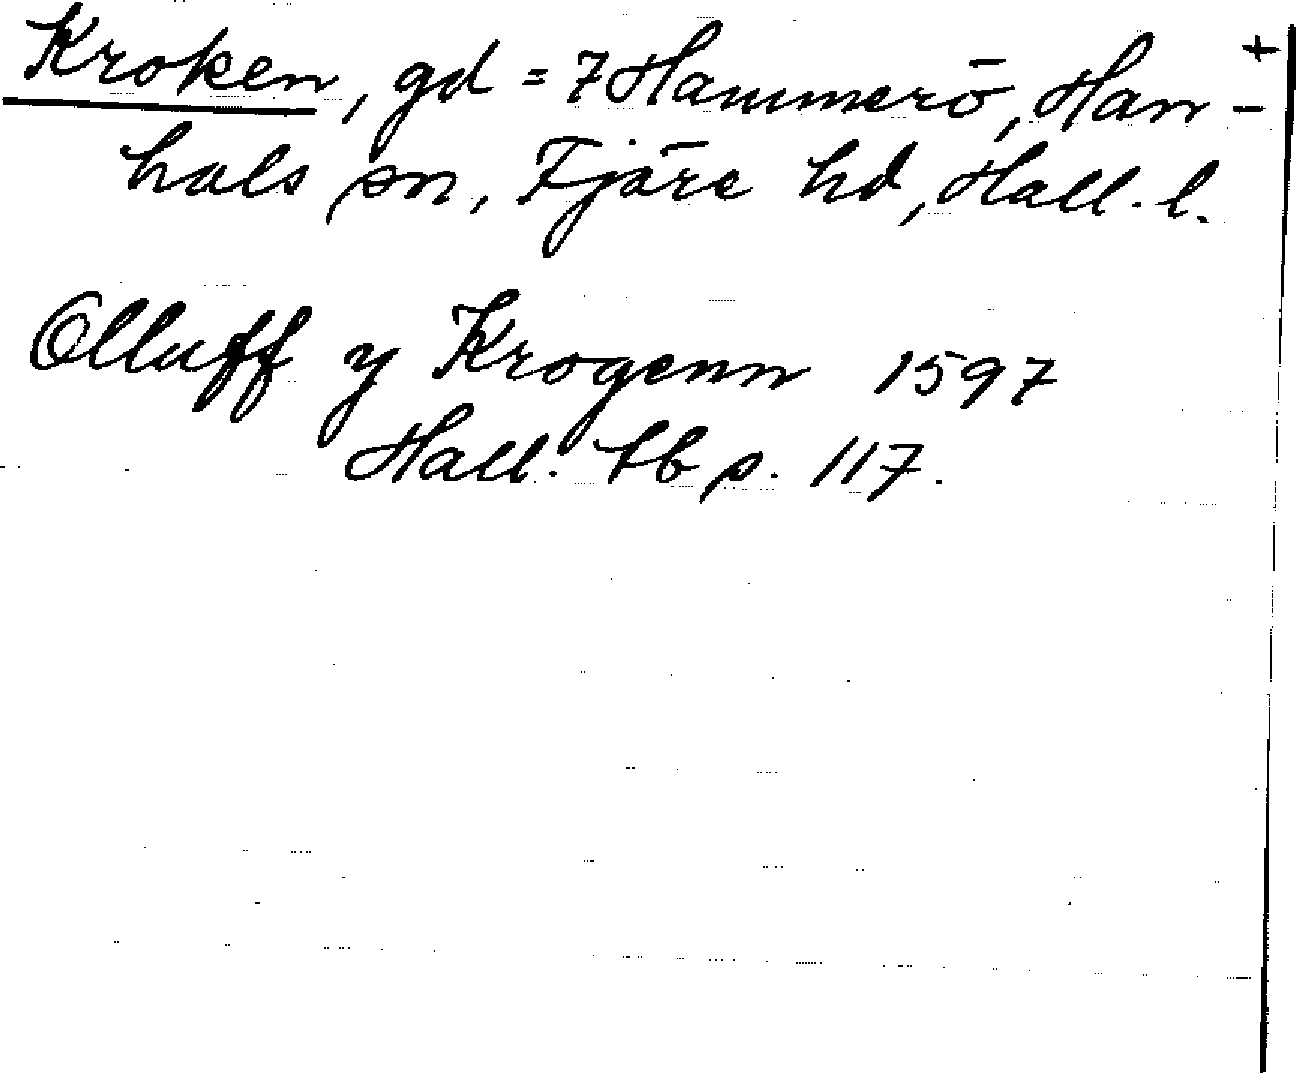 Kroken, gd = 7 Hammerö, Han- +
hals sn, Fjäre hd, Hall. l.
Olluff y Krogenn 1597
Hall. tb p. 117.